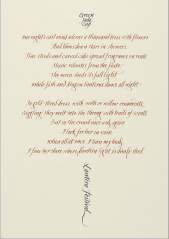 Green
Jade
Cup
One night's east wind adorns a thousand trees with flowers
And blows down stars in showers.
Fine steeds and carved cabs spread fragrance en route;
Music vibrates from the flute;
The moon sheds its full light
While fish and dragon lanterns dance all night.
In gold-thread dress, with moth or willow ornaments,
Giggling, they melt into the throng with trails of scents.
But in the crowd once and again
I look for her in vain.
When all at once I turn my head,
I find her there where lantern light is dimly shed.
Lantern Festival